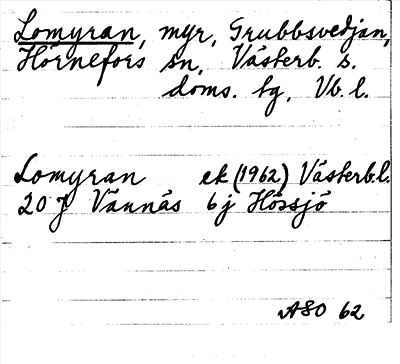 Lomyran, myr, Grubbsvedjan,
Hörnefors sn, Västerb. s.
doms. tg, Vb. l.
Lomyran ek (1962) Västerb.l.
20 J Vännäs 6 j Hössjö
ASO 62